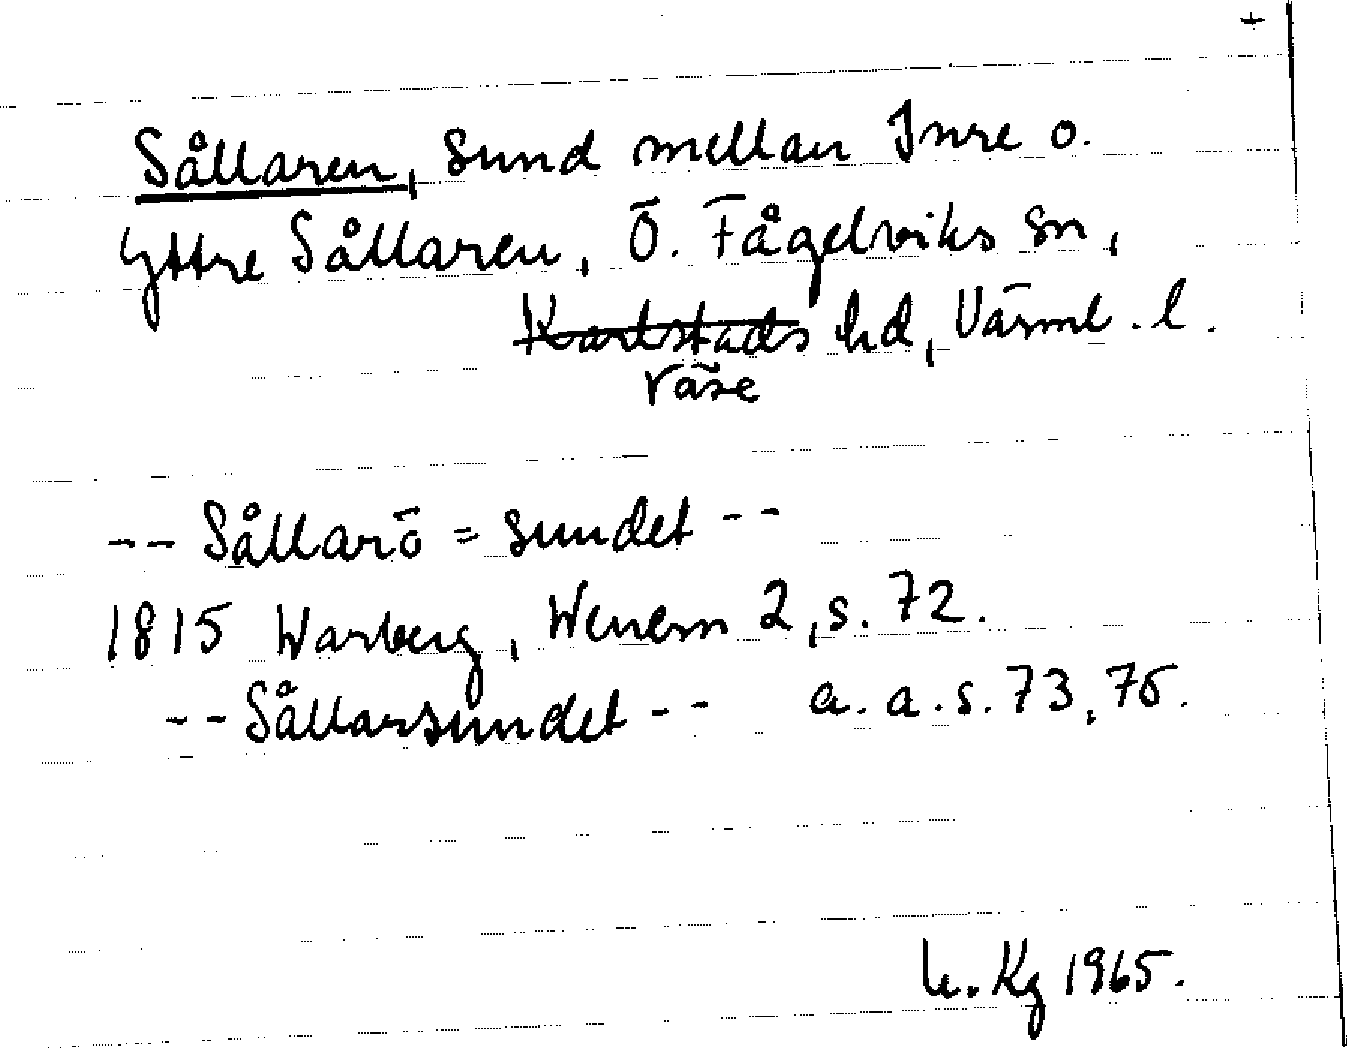 +
Sållaren, sund mellan Inre o.
Yttre Sållaren, Ö. Fågelviks sn,
Karlstads hd, Värml. l.
Väse
-- Sållarö = sundet --
1815 Warberg, Wenern 2, s. 72.
-- Sållarsundet -- a. a. s. 73, 75.
Kg 1965.